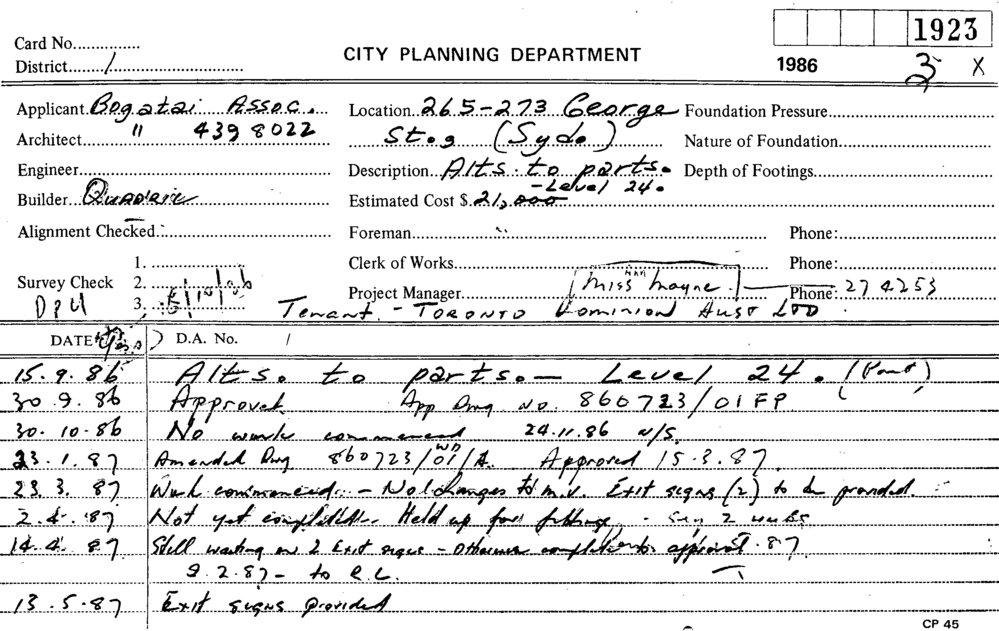 1923
Card No.
CITY PLANNING DEPARTMENT
District 1
1986 3 X
Applicant Bogatai Assoc. Location 265-273 George Foundation Pressure
Architect " 439 8022 St. (Syd.) Nature of Foundation
Engineer Description Alts. to parts. Depth of Footings
- Level 24.
Builder Estimated Cost $ 21,000
Alignment Checked Foreman Phone:
1. Clerk of Works Phone:
Survey Check 2.
Project Manager Miss Mayne Phone: 274253
3.
Tenant - Toronto Dominion Aust LTD
DATE D.A. No.
15.9.86 Alts. to parts. - Level 24. (Part)
30.9.86 Approved App Dwg No. 860723/01FP
30.10.86 No work commenced 24.11.86 N/S.
23.1.87 Amended Dwg 860723/WD01/A. Approved 15.3.87.
23.3.87 Work commenced - No changes to m.v. Exit signs (2) to be provided.
2.4.87 Not yet completed. Held up for - say 2 weeks
14.4.87 Still waiting on 2 Exit signs - Otherwise completed to approval .87
9.2.87 - to
13.5.87 Exit signs provided
CP 45